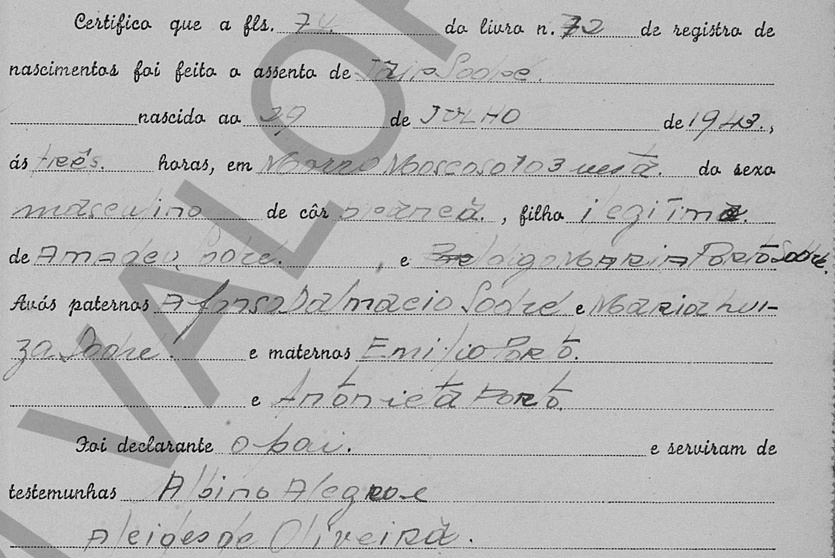 Certifico que a fls. 74 do livro n. 72 de registro de
nascimentos foi feito o assento de Sodré.
nascido ao 29 de JULHO de 1943.,
ás três. horas, em Morro Moscoso 103 nesta. do sexo
masculino de côr branca. , filho ilegitimo.
de Amadeu Sodré. e MARIA PORTO Sodré,
Avós paternos Afonso Dalmacio Sodré e Maria Lui-
za Sodré. e maternos Emilio Porto.
e Antonieta Porto.
Foi declarante o pai. e serviram de
testemunhas Albino Alegro e
Alcides de Oliveira.
VALOR